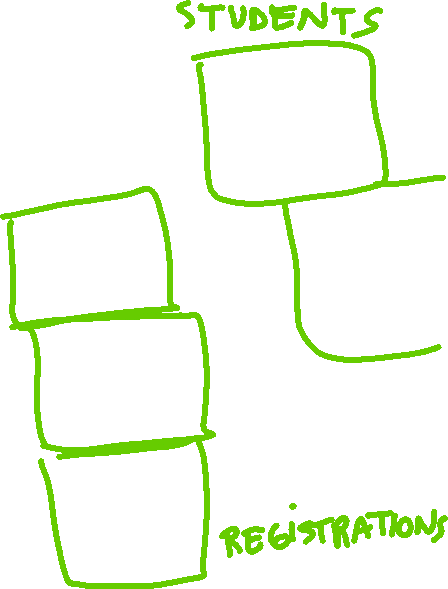 STUDENTS
REGiSTRATIONS